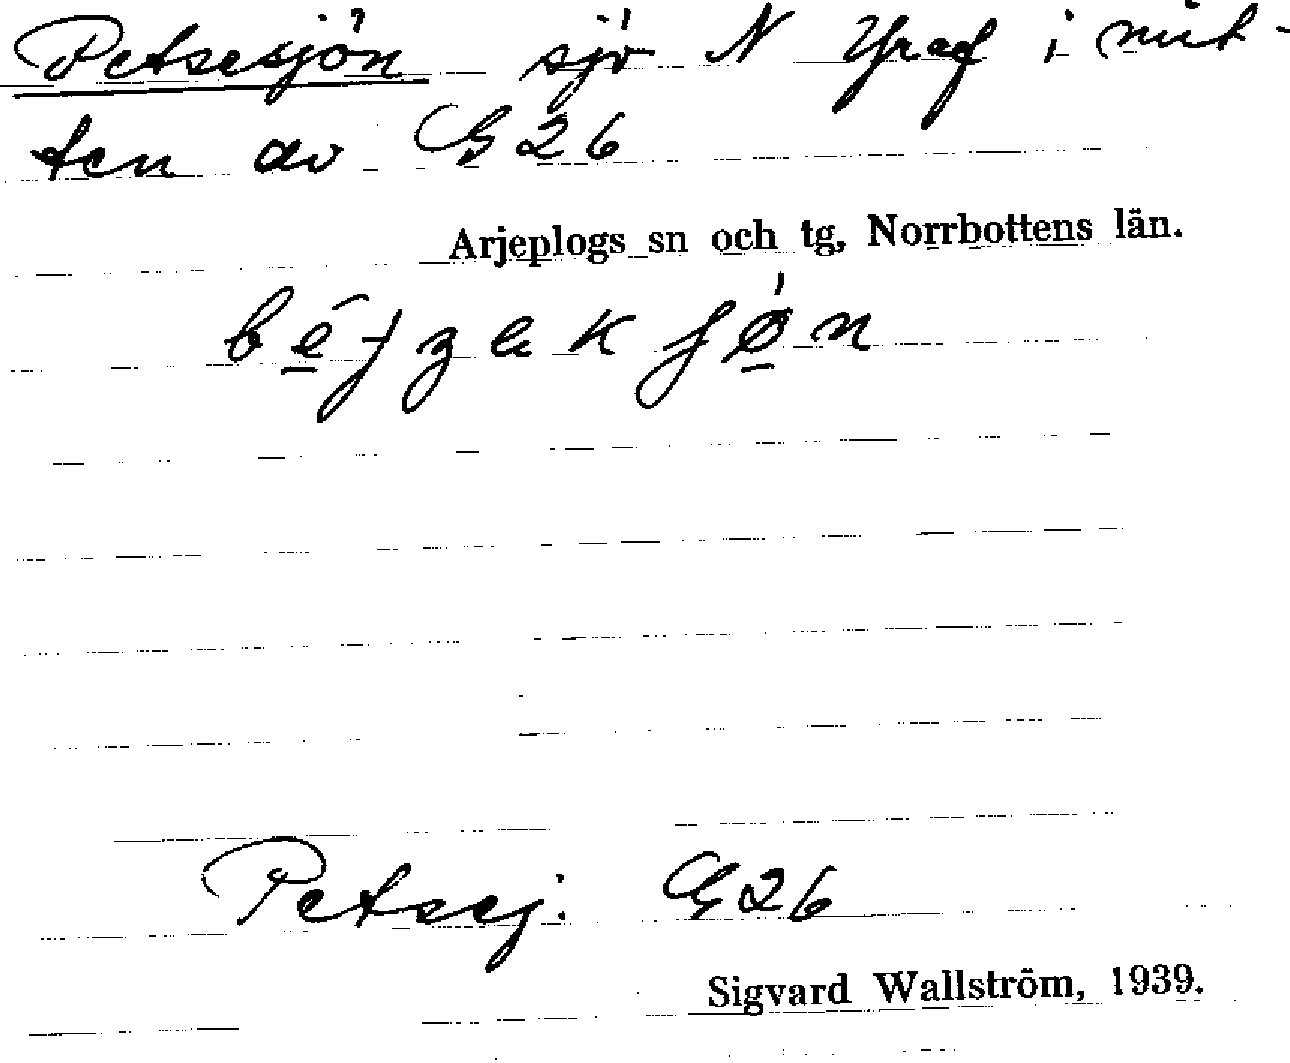 Petsesjön sjö N Yraf i mit-
ten av G 26
Arjeplogs sn och tg, Norrbottens län.
Petsej. G26
Sigvard Wallström, 1939.